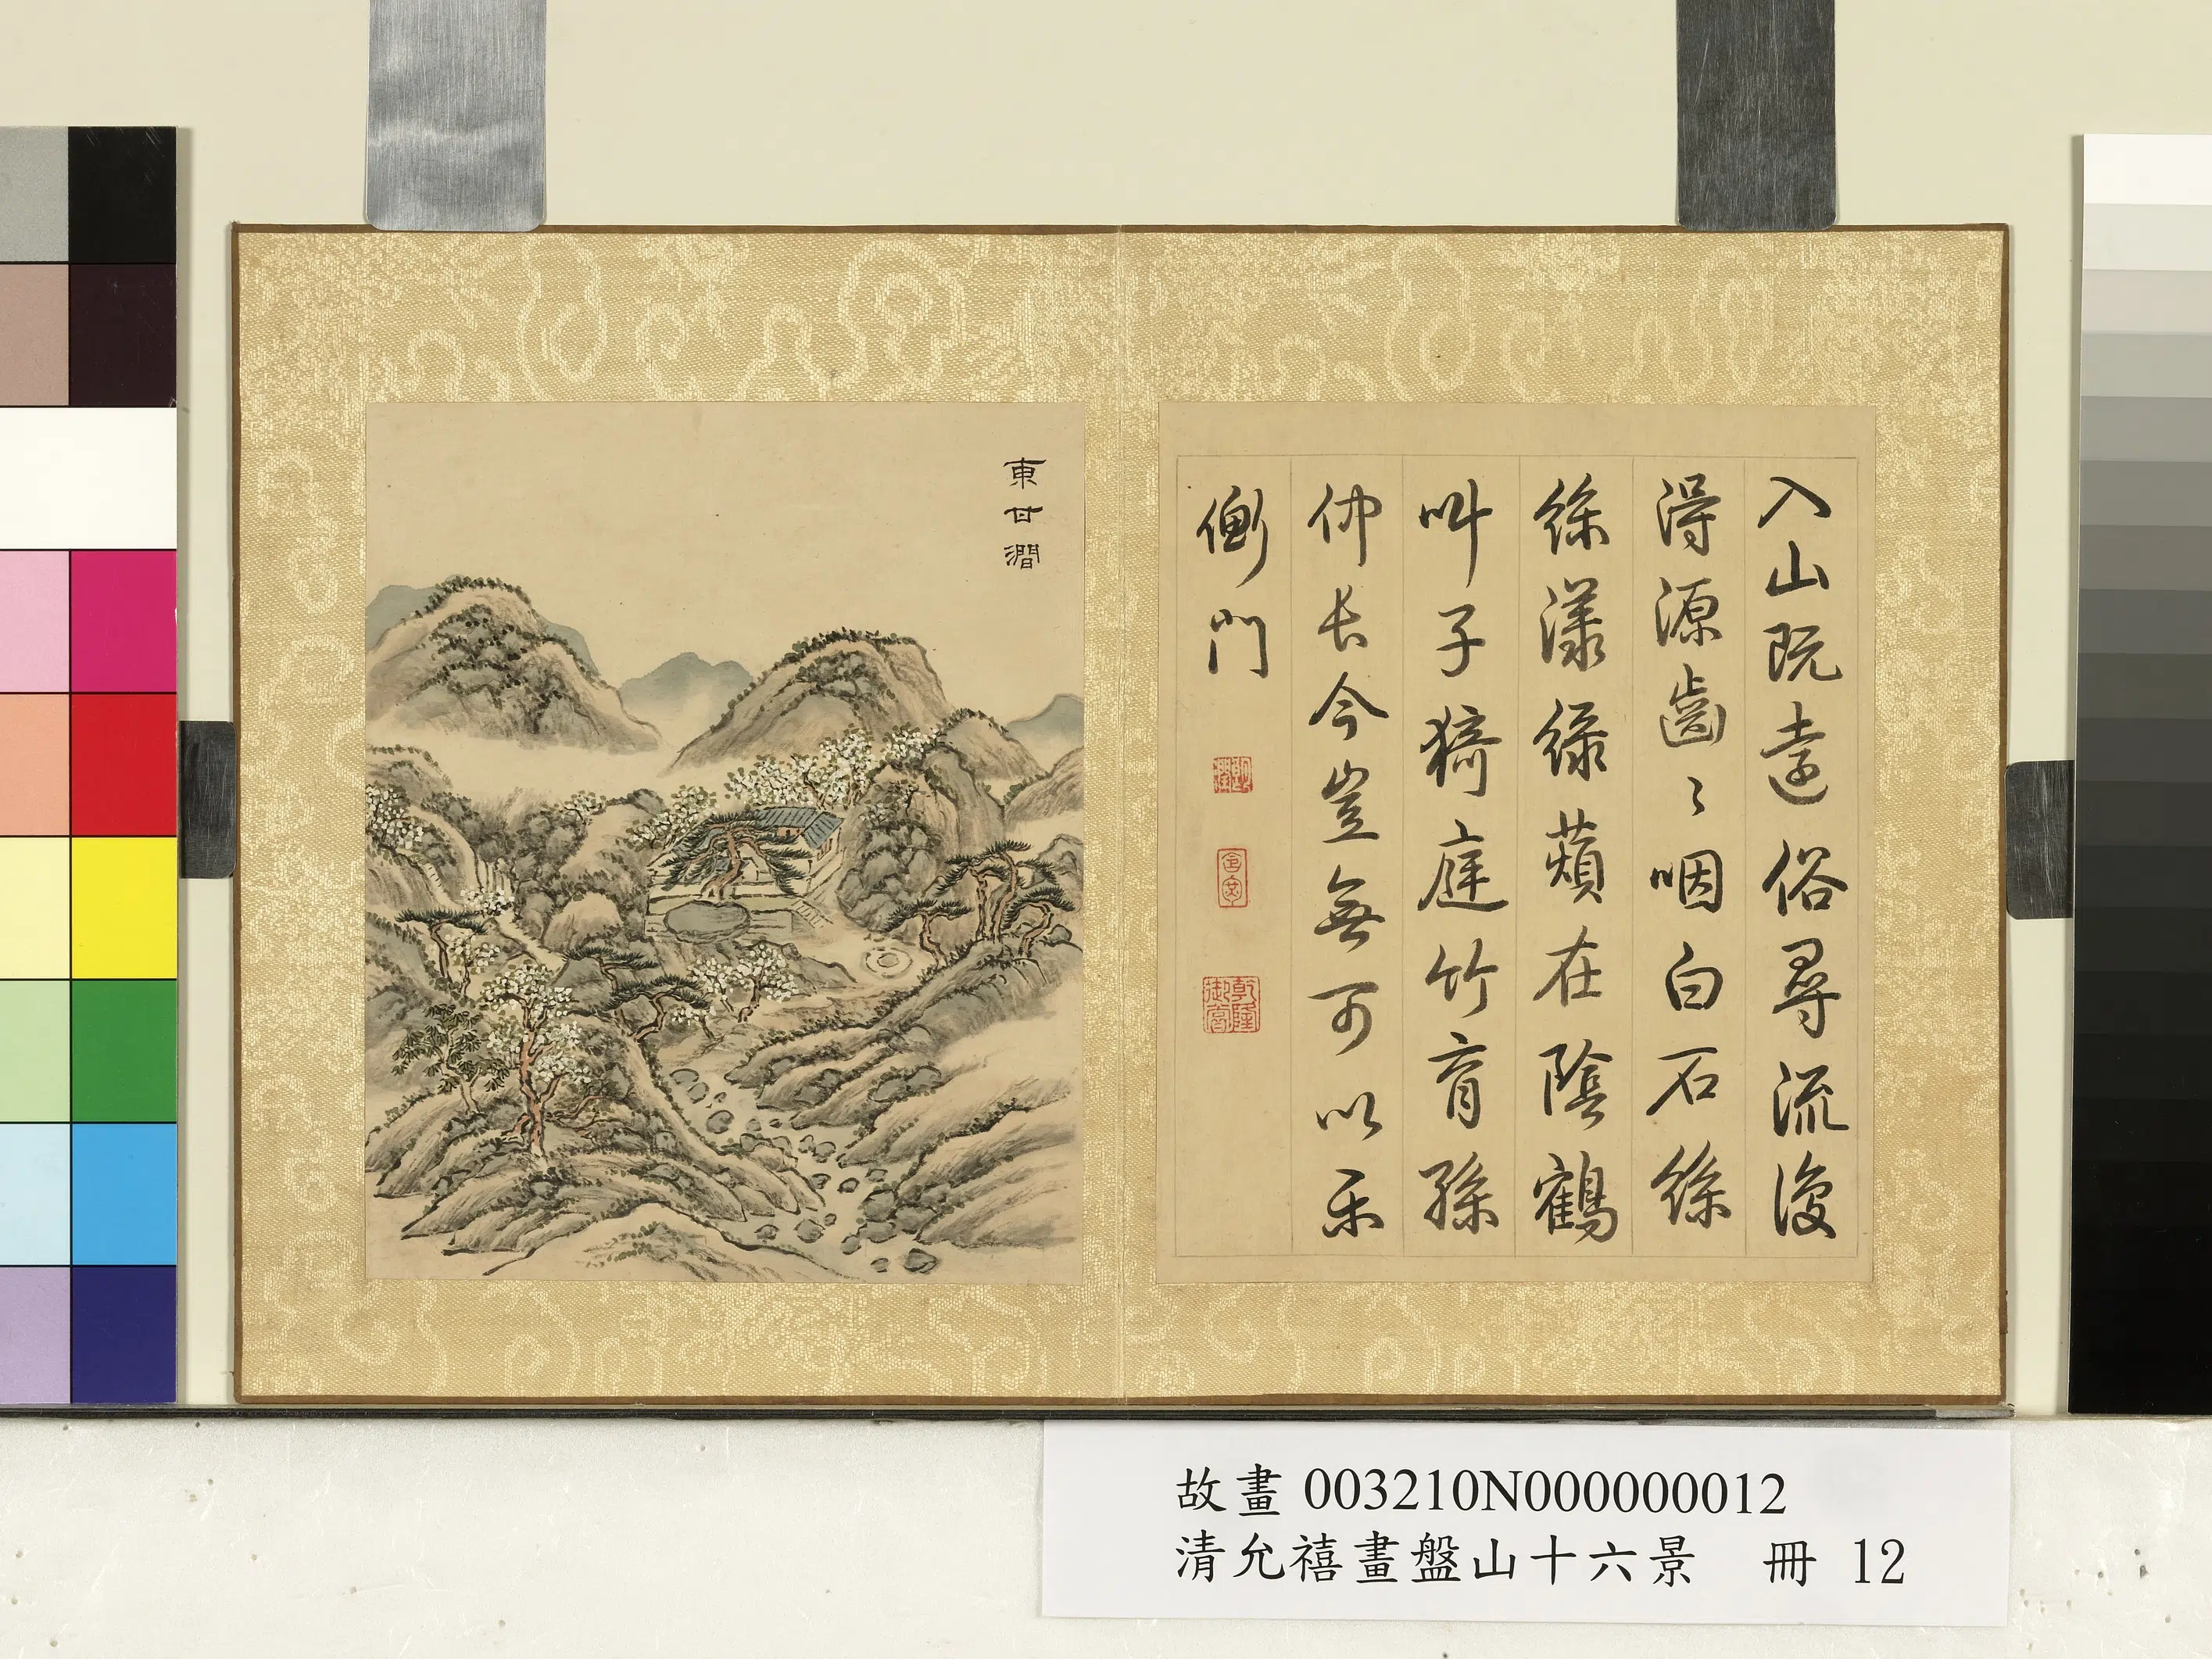 東甘澗
入山既遠俗尋流復
得源齒〻咽白石徐
徐漾綠蘋在陰鶴
叫子猗庭竹育孫
仲長今豈無可以樂
衡門
故畫 003210N000000012
清允禧畫盤山十六景 冊 12